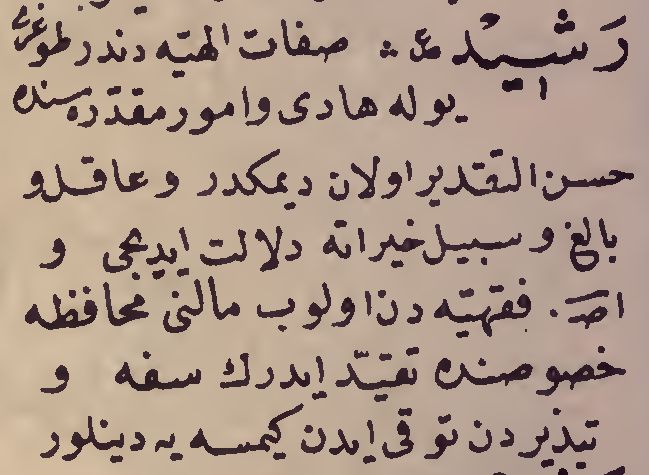 رَشِيدْ ع؞ صفات الهیه دندر طوغری
یوله هادی وامور مقدره سنده
حسن التقدیر اولان دیمکدر وعاقل و
بالغ وسبیل خیراته دلالت ایدیجی و
اصـ. فقهیّه دن اولوب مالنی محافظه
خصوصنده تقیّد ایدرك سفه و
تبذیردن توقی ایدن کیمسه یه دینلور